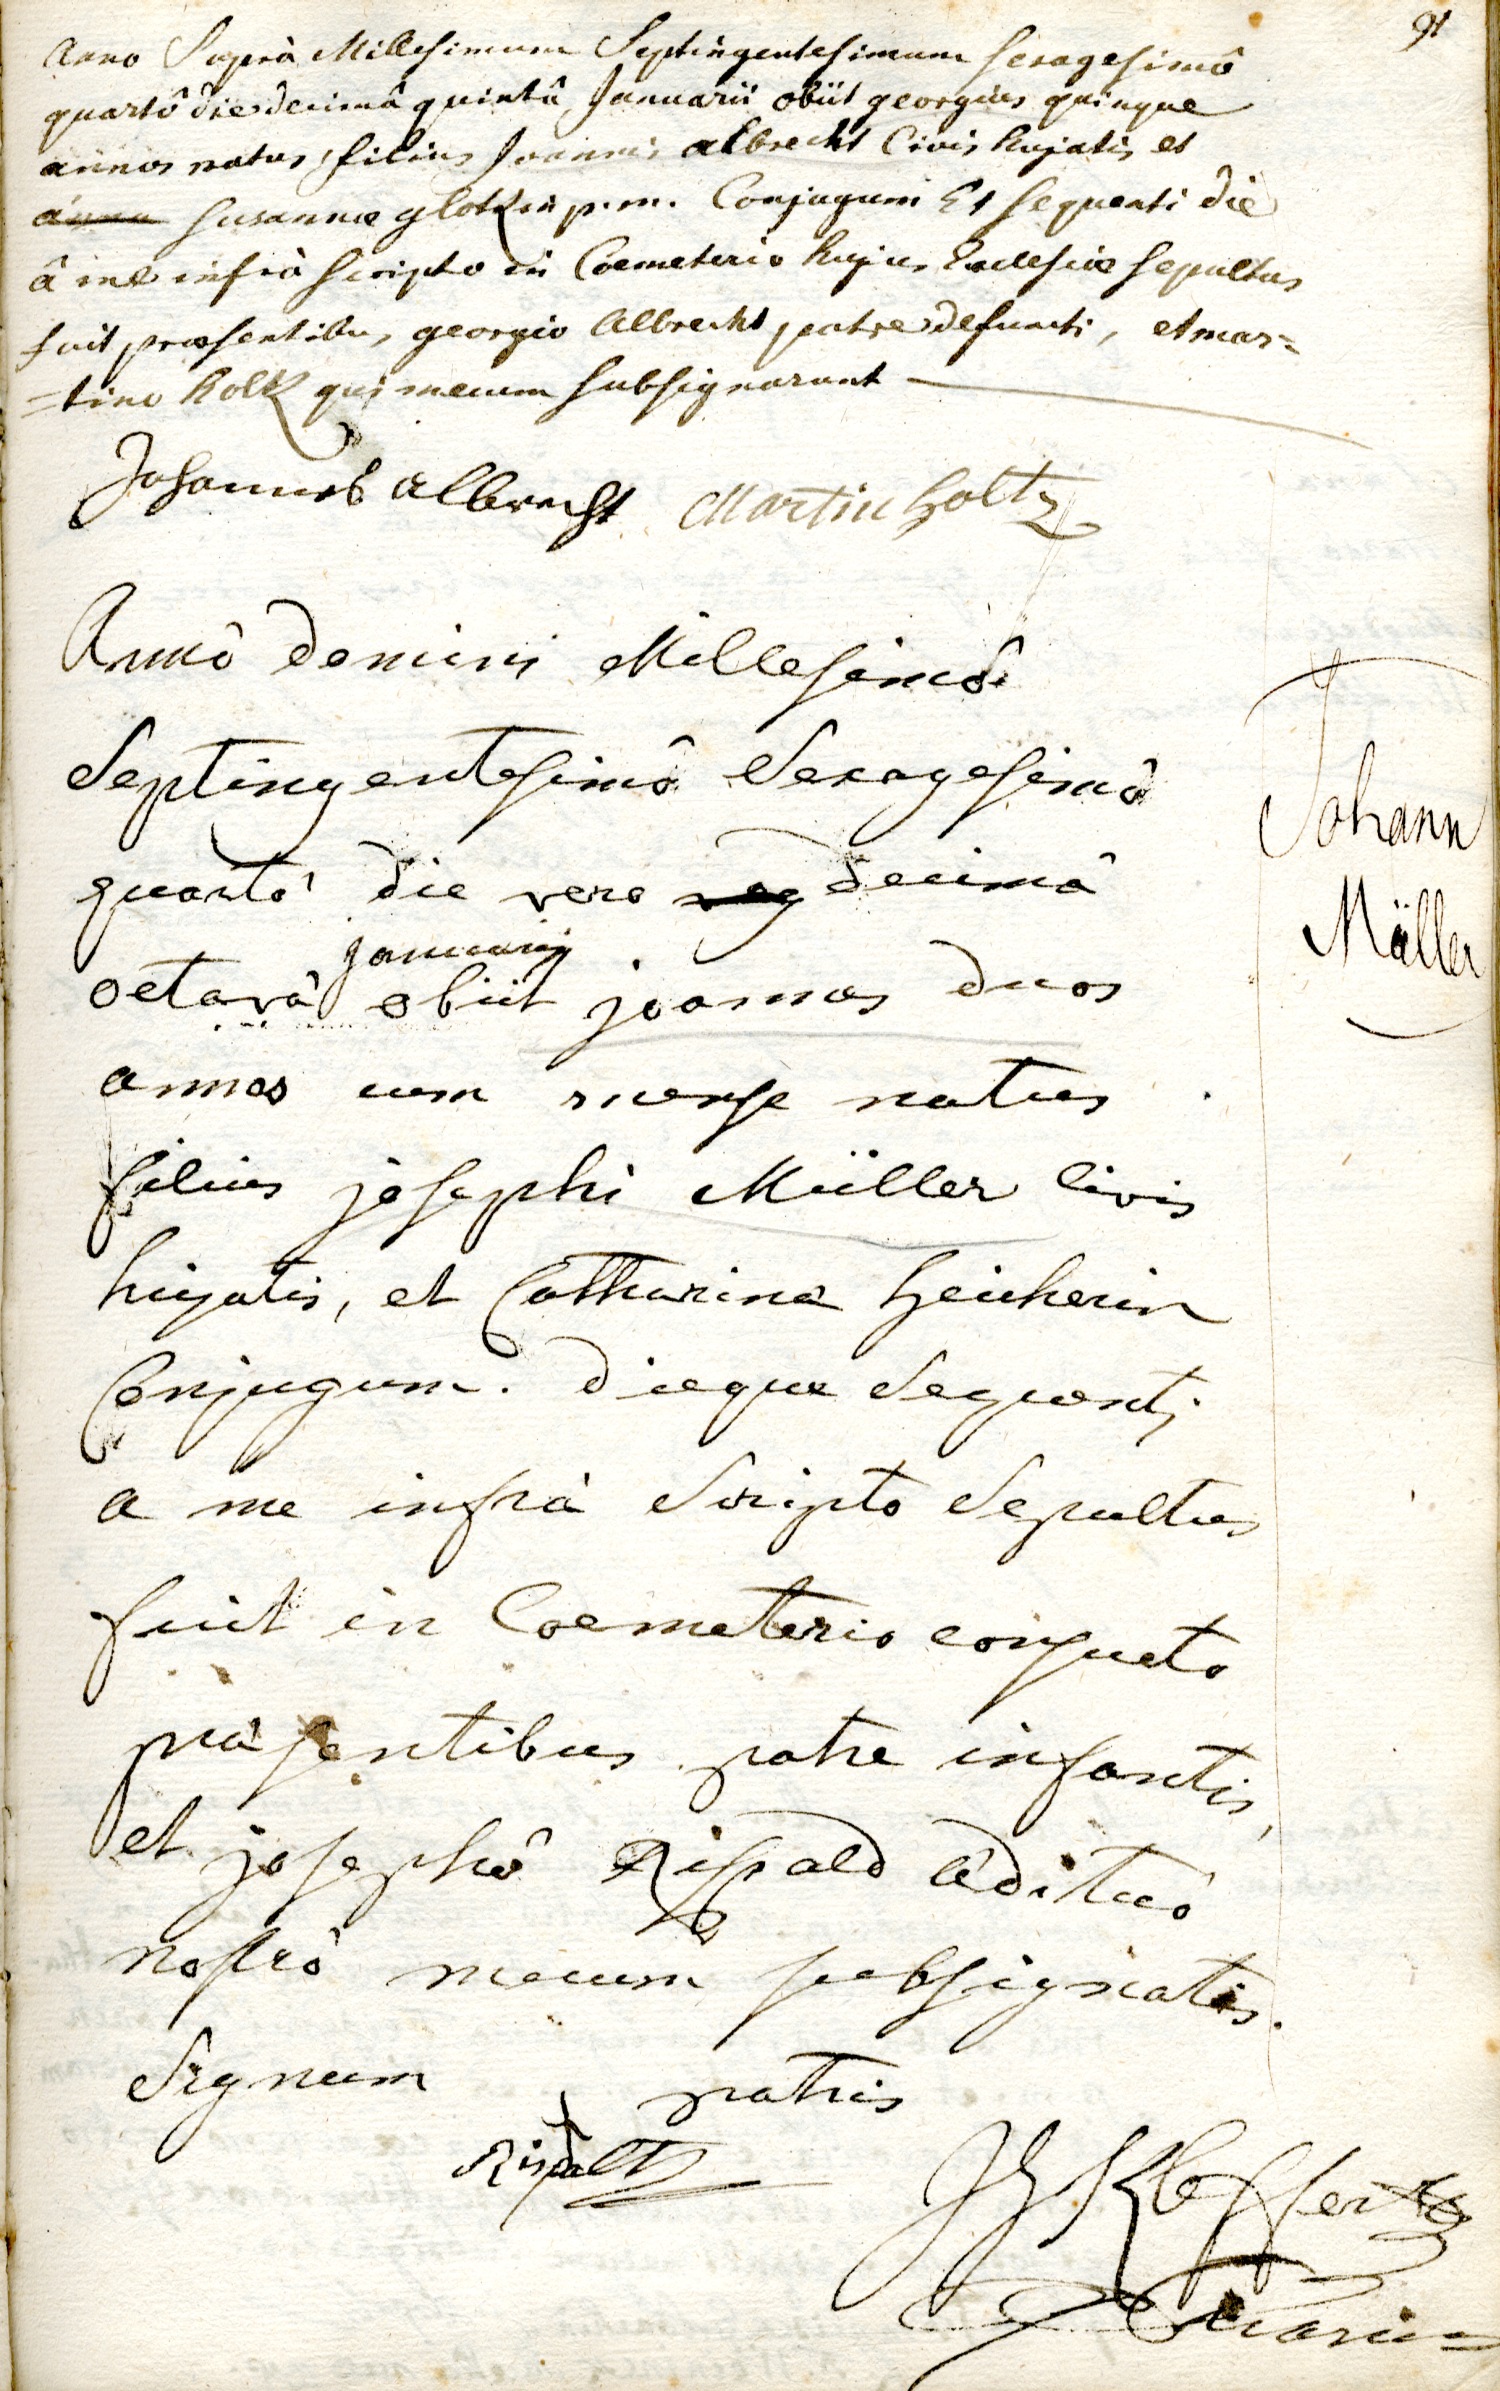 91
Anno Suprà Millesimum Septingentesimum sexagesimô
quartô die decimâ quintâ Januarii obiit georgius quinque
annos natus, filius Joannis albrecht Civis hujatis et
susannæ glotzin p.m. Conjugum Et sequenti die
â me infrà scripto in Coemeterio hujus Ecclesiæ sepultus
fuit præsentibus georgio Albrecht patre defuncti, et mar=
=tino holtz qui mecum subsignarunt
Johannes albrecht Martin holtz
Annô domini Millesimô
Septingentesimô Sexagesimô
quartô die vero decimâ
januarij
octavâ obiit joannes duos
annos cum mense natus
filius josephi Müller Civis
hujatis, et Catharina heicherin
Conjugum. dieque Sequenti
a me infrà Scripto Sepultus
fuit in Coemeterio consueto
præsentibus patre infantis,
et josephô Rispald ædituô
nostrô mecum subsignatis.
Signum patris
Rispalt
Vicarius
Johann
Müller